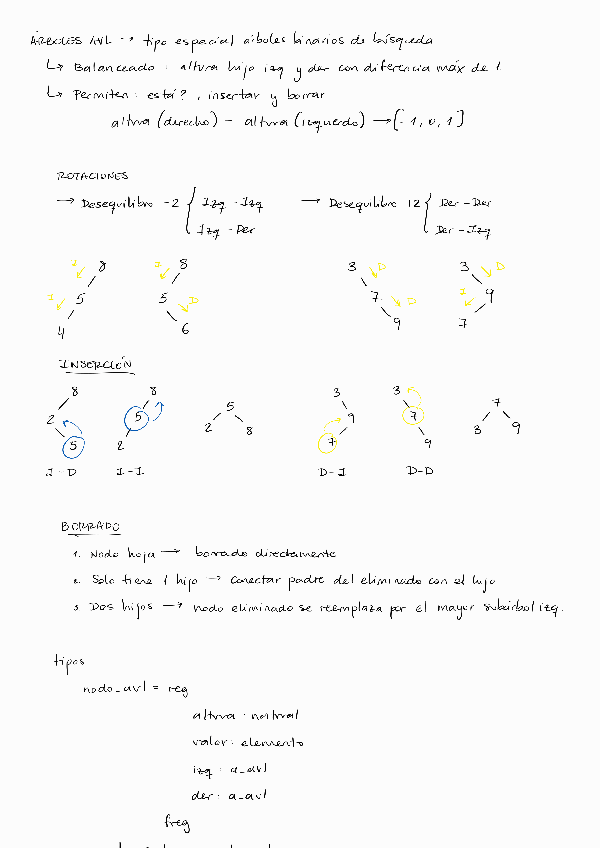 ÁRBOLES AVL → tipo espacial árboles binarios de búsqueda
↳ Balanceado : altura hijo izq y der con diferencia máx de 1
↳ Permiten : está? , insertar y borrar
altura (derecho) - altura (izquierdo) → [-1, 0, 1]
ROTACIONES
→ Desequilibro -2 { Izq - Izq
Izq - Der
→ Desequilibro +2 { Der - Der
Der - Izq
I 8 I 8 3 D 3 D
I 5 5 D 7 D I 9
4 6 9 7
INSERCIÓN
8 8 5 3 3 7
2 5 2 8 9 7 3 9
5 2 7 9
I - D I - I D - I D-D
BORRADO
1. Nodo hoja → borrado directamente
2. Solo tiene 1 hijo → conectar padre del eliminado con el hijo
3. Dos hijos → nodo eliminado se reemplaza por el mayor subárbol izq.
tipos
nodo_avl = reg
altura : natural
valor : elemento
izq : a_avl
der : a_avl
freg